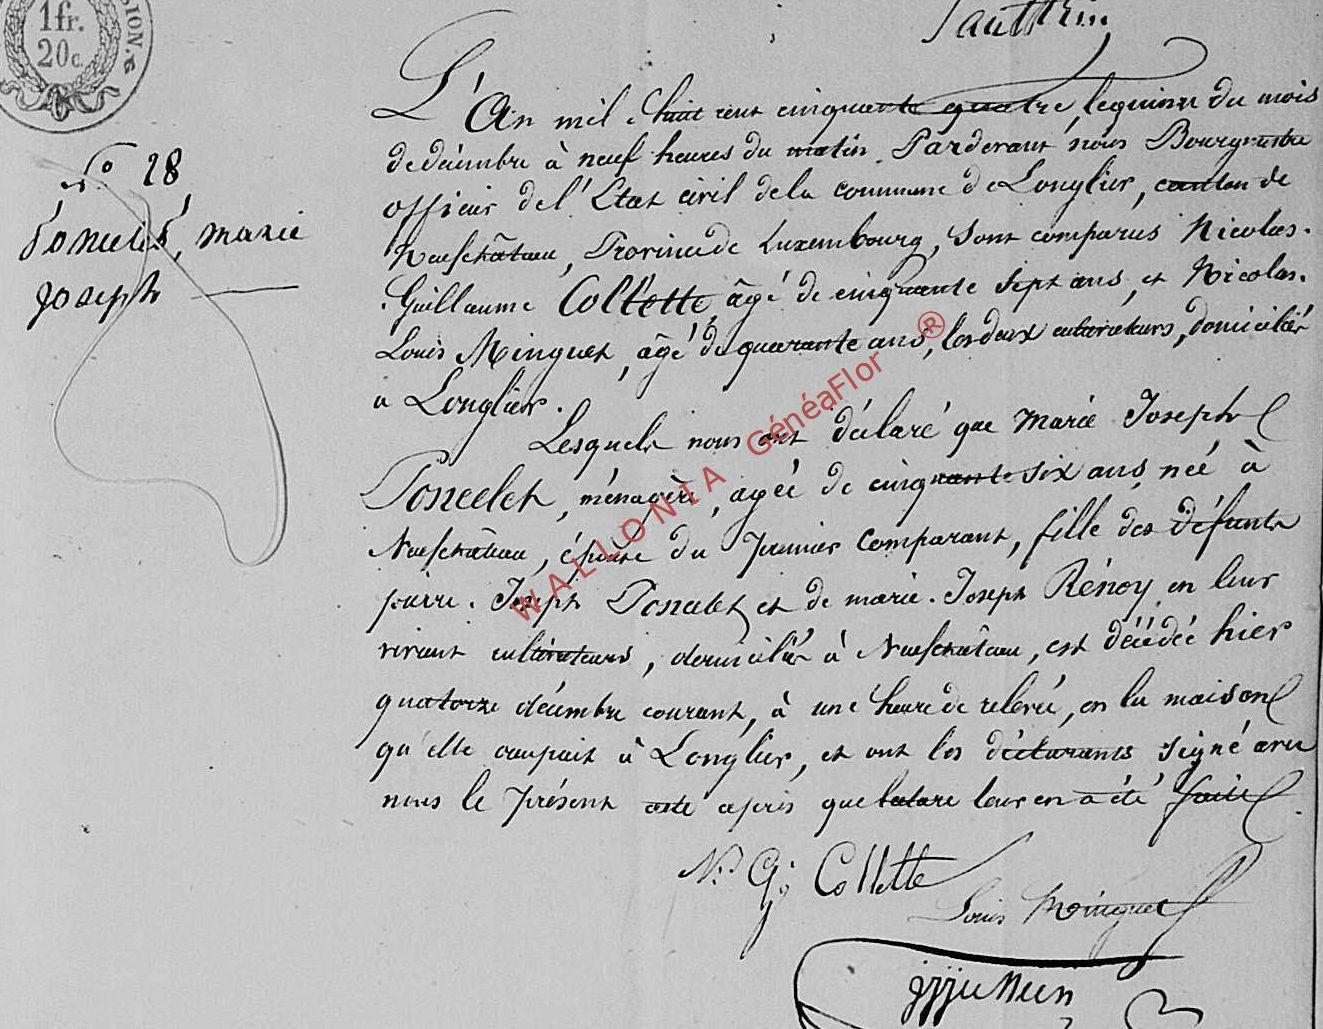 SION. 6
1fr.
20c.
L'An mil huit cent cinquante quatre, le quinze du mois
de décembre à neuf heures du matin, Pardevant nous Bourgmestre
officier de l'Etat civil de la commune de Longlier, canton de
Neufchâteau, Province de Luxembourg, sont comparus Nicolas-
Guillaume Collette, âgé de cinquante sept ans, et Nicolas-
Louis Minguet, âgé de quarante ans, les deux cultivateurs, domiciliés
a Longlier.
N° 28
Poncelet, marie
Joseph
Lesquels nous ont déclaré que Marie Joseph
Poncelet, ménagère, agée de cinquante six ans, née à
Neufchâteau, épouse du premier comparant, fille des défunts
pierre-Joseph Poncelet et de marie-Joseph Rénoy, en leur
vivant cultivateurs, domiciliés à Neufchâteau, est décédée hier
quatorze décembre courant, à une heure de relevée, en la maison
qu'elle occupait à Longlier, et ont les déclarants signé avec
nous le présent acte après que lecture leur en a été faite
WALLONIA GénéaFlor ®
N. G. Collette
Louis Minguet